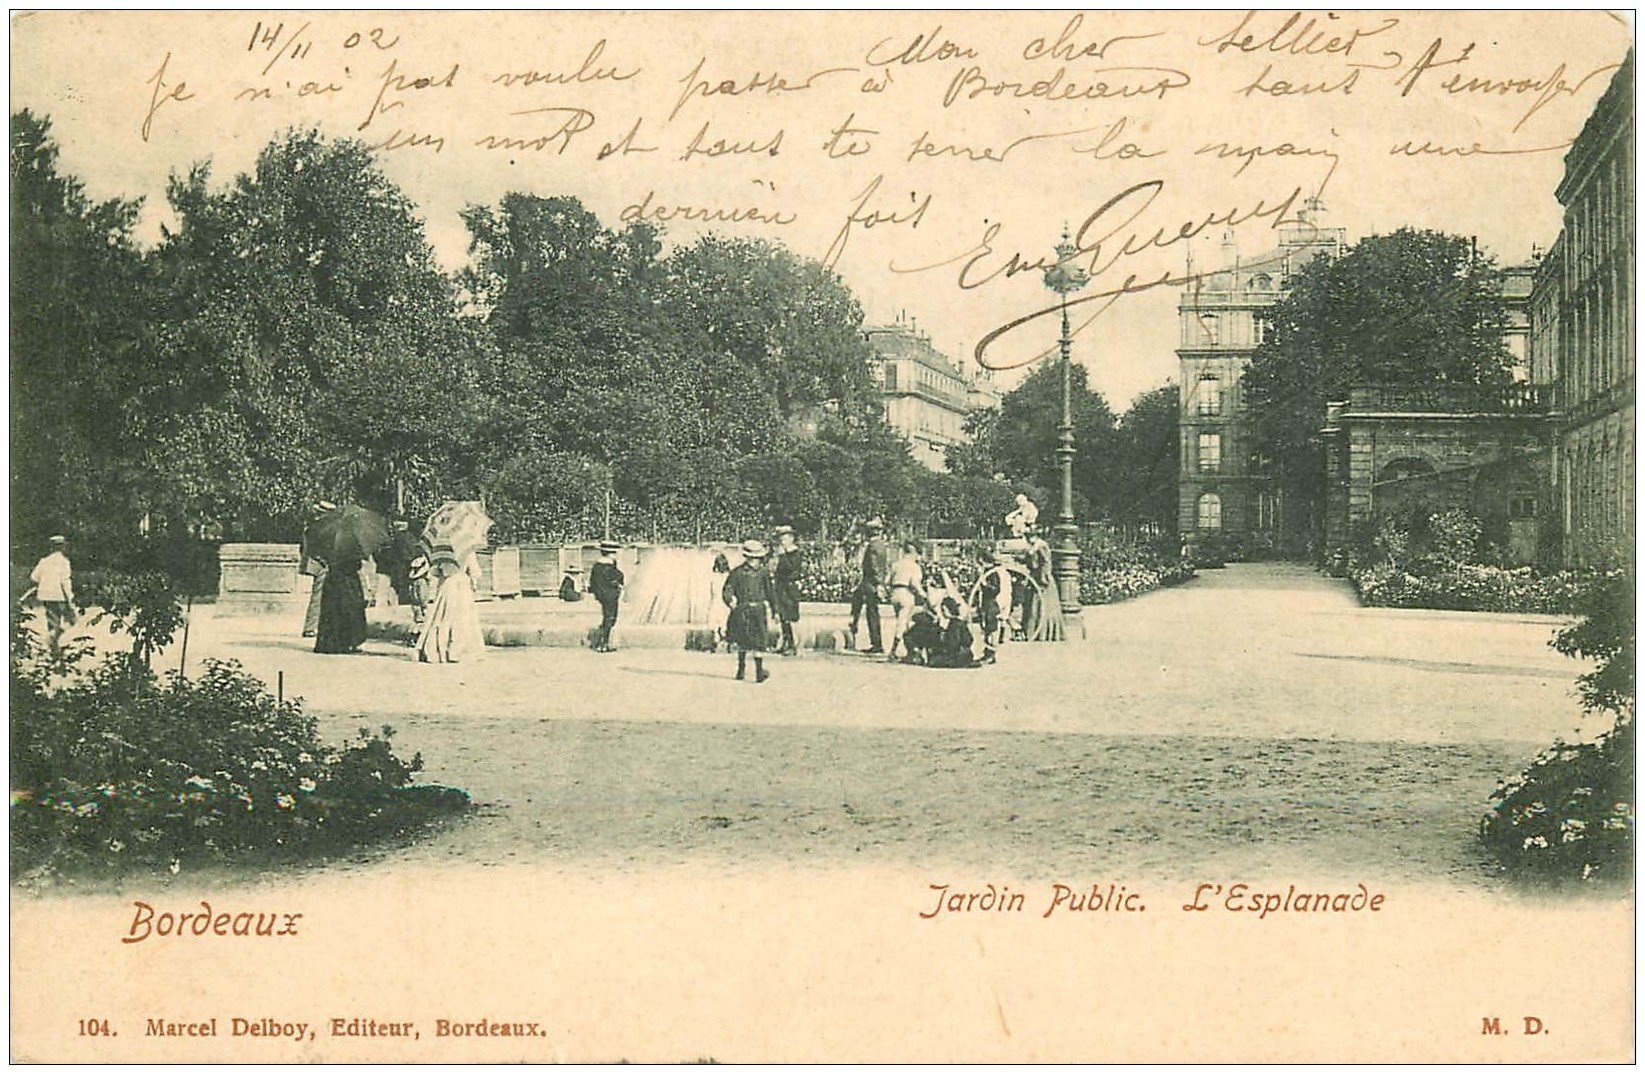 14/11 02
Mon cher Sellier
Je n'ai pas voulu passer à Bordeaux sans t'envoyer
un mot et sans te serrer la main une
dernièr fois.
Em Guerit
Bordeaux
Jardin Public. L'Esplanade
104. Marcel Delboy, Editeur, Bordeaux.
M. D.